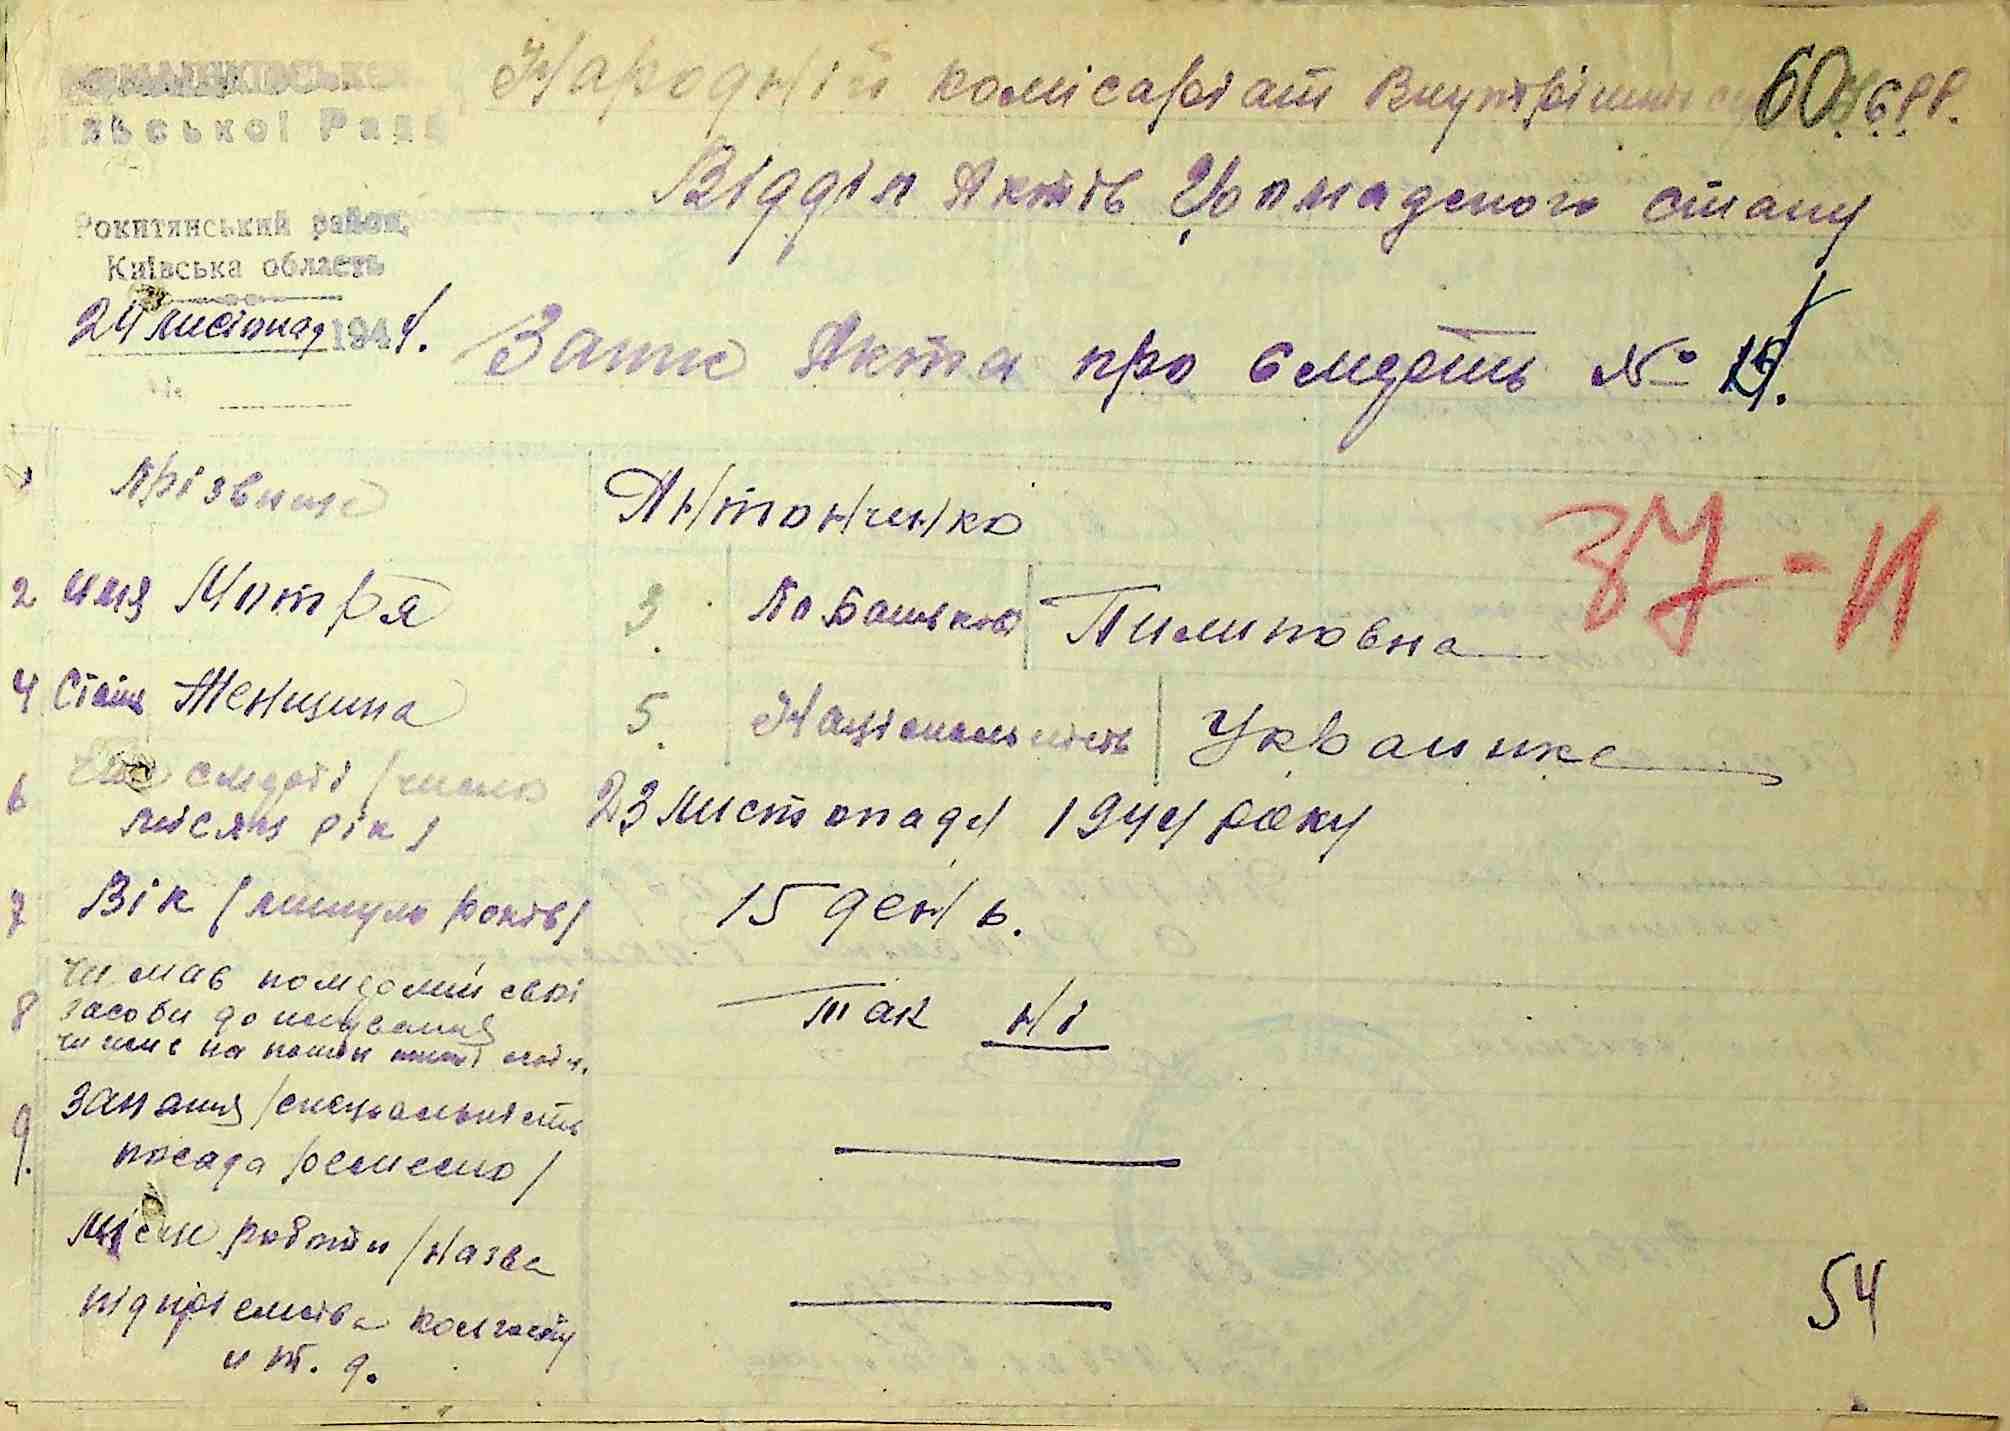 Сільської Ради
Рокитянський район,
Київська область
24 листопад 1944.
Народній комісаріат Внутрішніх с
60
Відділ Актів Громадского стану
Запис Акта про смерть №
Прізвище Антонченко
37-И
2 имя Мотря 3. По Батькові Пилиповна
4 Стать Женщина 5. Національність Украинка
6 Час смерті (число
місяць рік) 23 листопада 1944 року
7 Вік (минуло років) 15 день.
8 Чи мав померлий свої
засоби до існування так ні
9. Заняття (специальність
посада ремесло)
Місце работи (назва
підприємства колгоспу
и т. д.
54